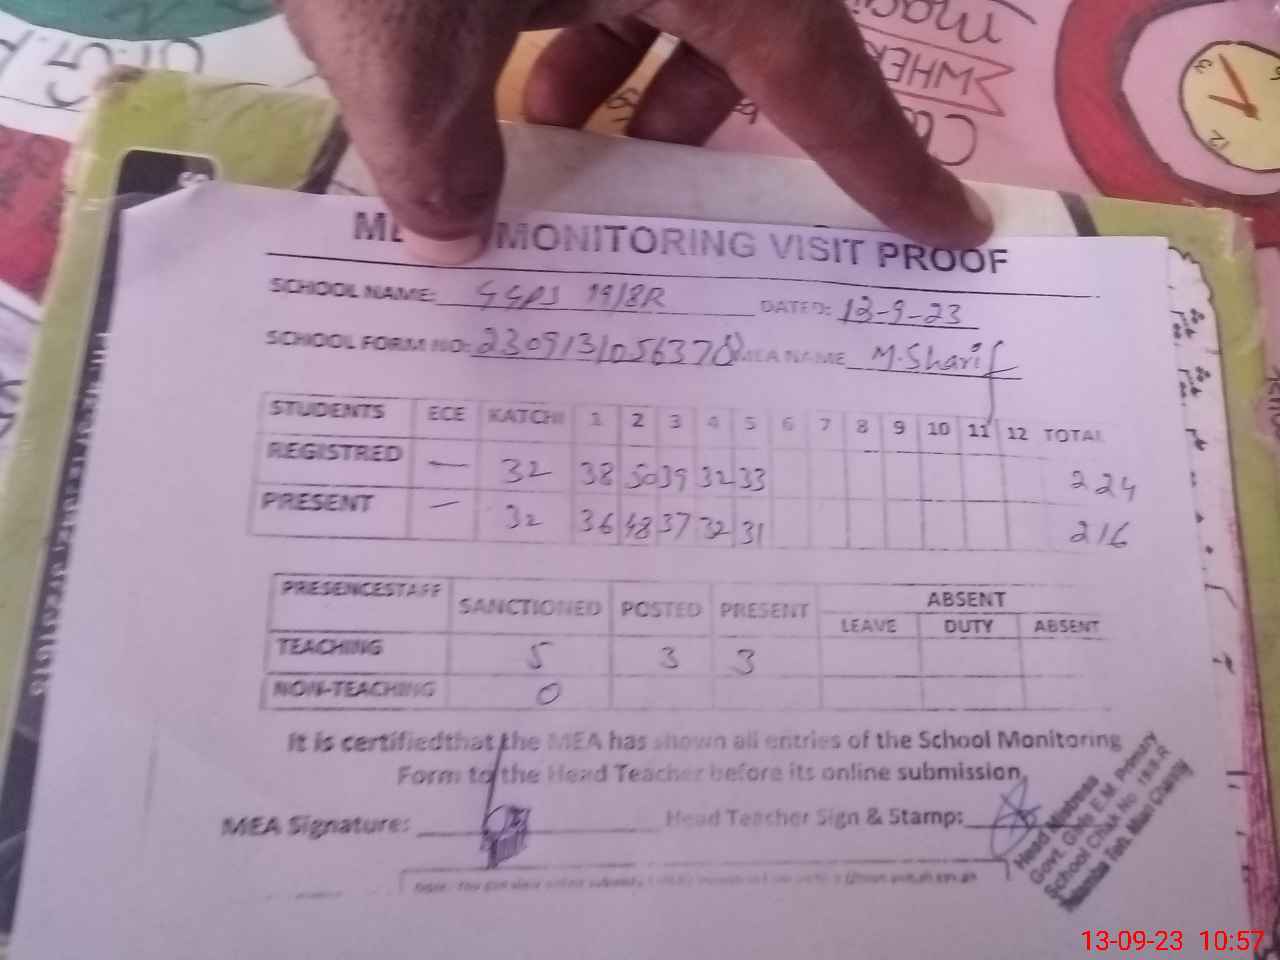 MONITORING VISIT PROOF
SCHOOL NAME: GGPS 19/8R DATED: 13-9-23
SCHOOL FORM NO: MEA NAME M. Sharif
STUDENTS ECE KATCHI 1 2 3 4 5 6 7 8 9 10 11 12 TOTAL
REGISTRED — 32 38 50 39 32 33 224
PRESENT — 32 36 48 37 32 31 216
PRESENCESTAFF SANCTIONED POSTED PRESENT ABSENT
LEAVE DUTY ABSENT
TEACHING 5 3 3
NON-TEACHING 0
It is certifiedthat the MEA has shown all entries of the School Monitoring
Form to the Head Teacher before its online submission.
MEA Signature: Head Teacher Sign & Stamp:
Head Mistress
Govt. Girls E.M. Primary
School Chak No. 19/8-R
Mian Channu
13-09-23 10:57